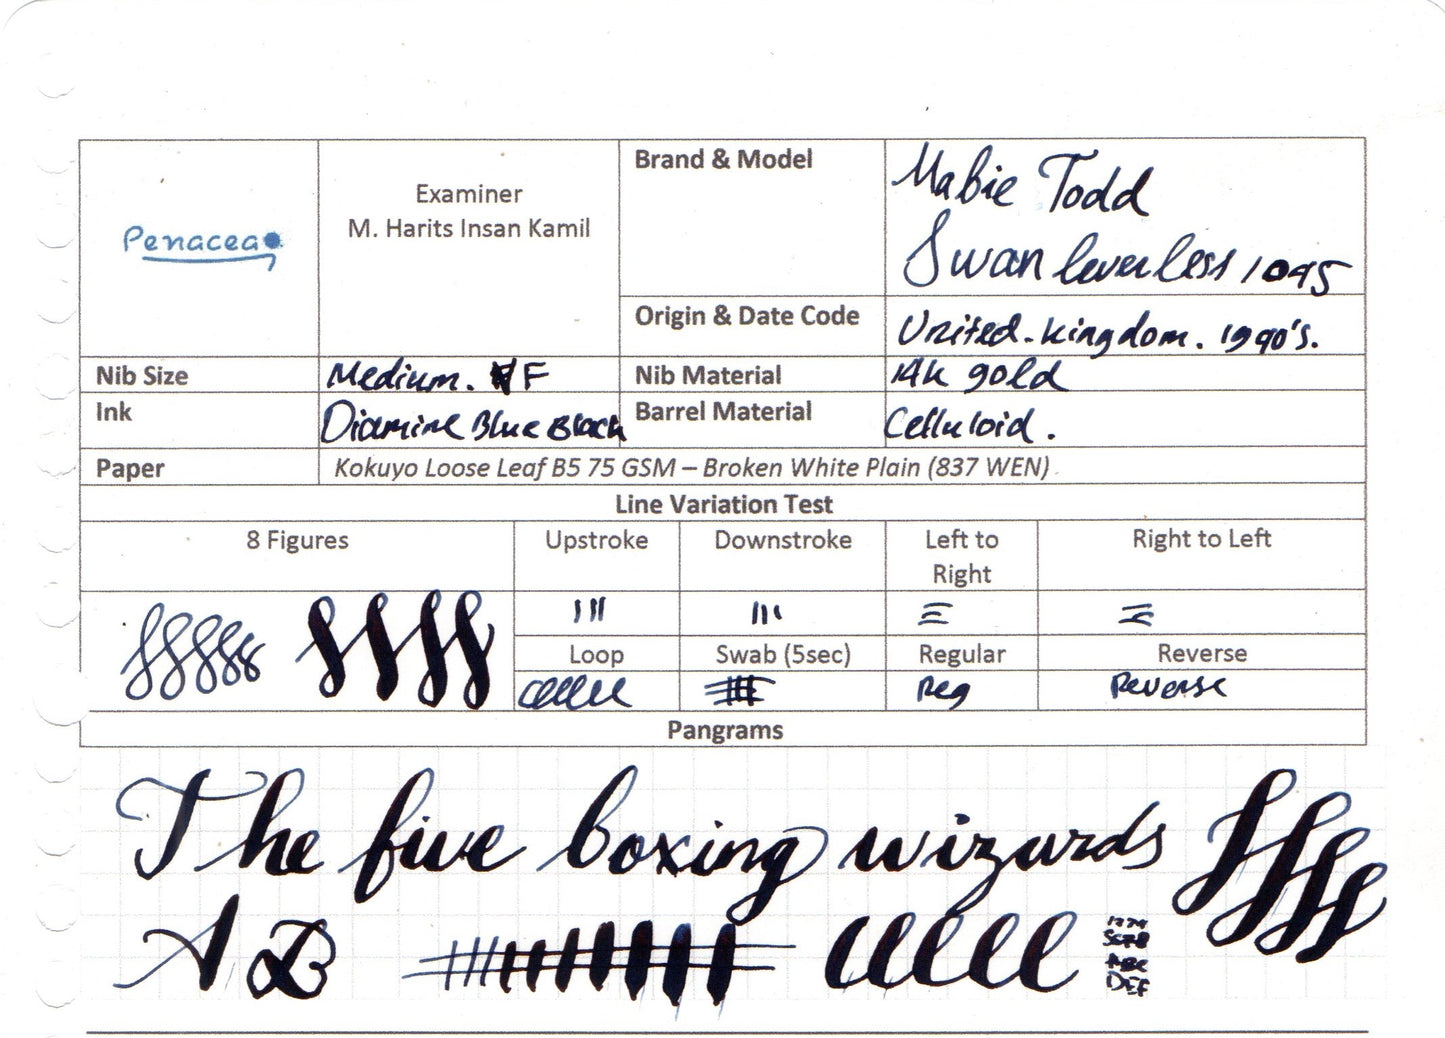 Penacea
Examiner
M. Harits Insan Kamil
Brand & Model
Mabie Todd
Swan leverless 1045
Origin & Date Code
United. kingdom. 1940's.
Nib Size
Medium. F
Nib Material
14k gold
Ink
Diamine Blue Black
Barrel Material
Celluloid.
Paper
Kokuyo Loose Leaf B5 75 GSM – Broken White Plain (837 WEN)
Line Variation Test
8 Figures
Upstroke
Downstroke
Left to
Right
Right to Left
Loop
Swab (5sec)
Regular
Reverse
Reg
Reverse
Pangrams
The five boxing wizards
A B
ABC
DEF